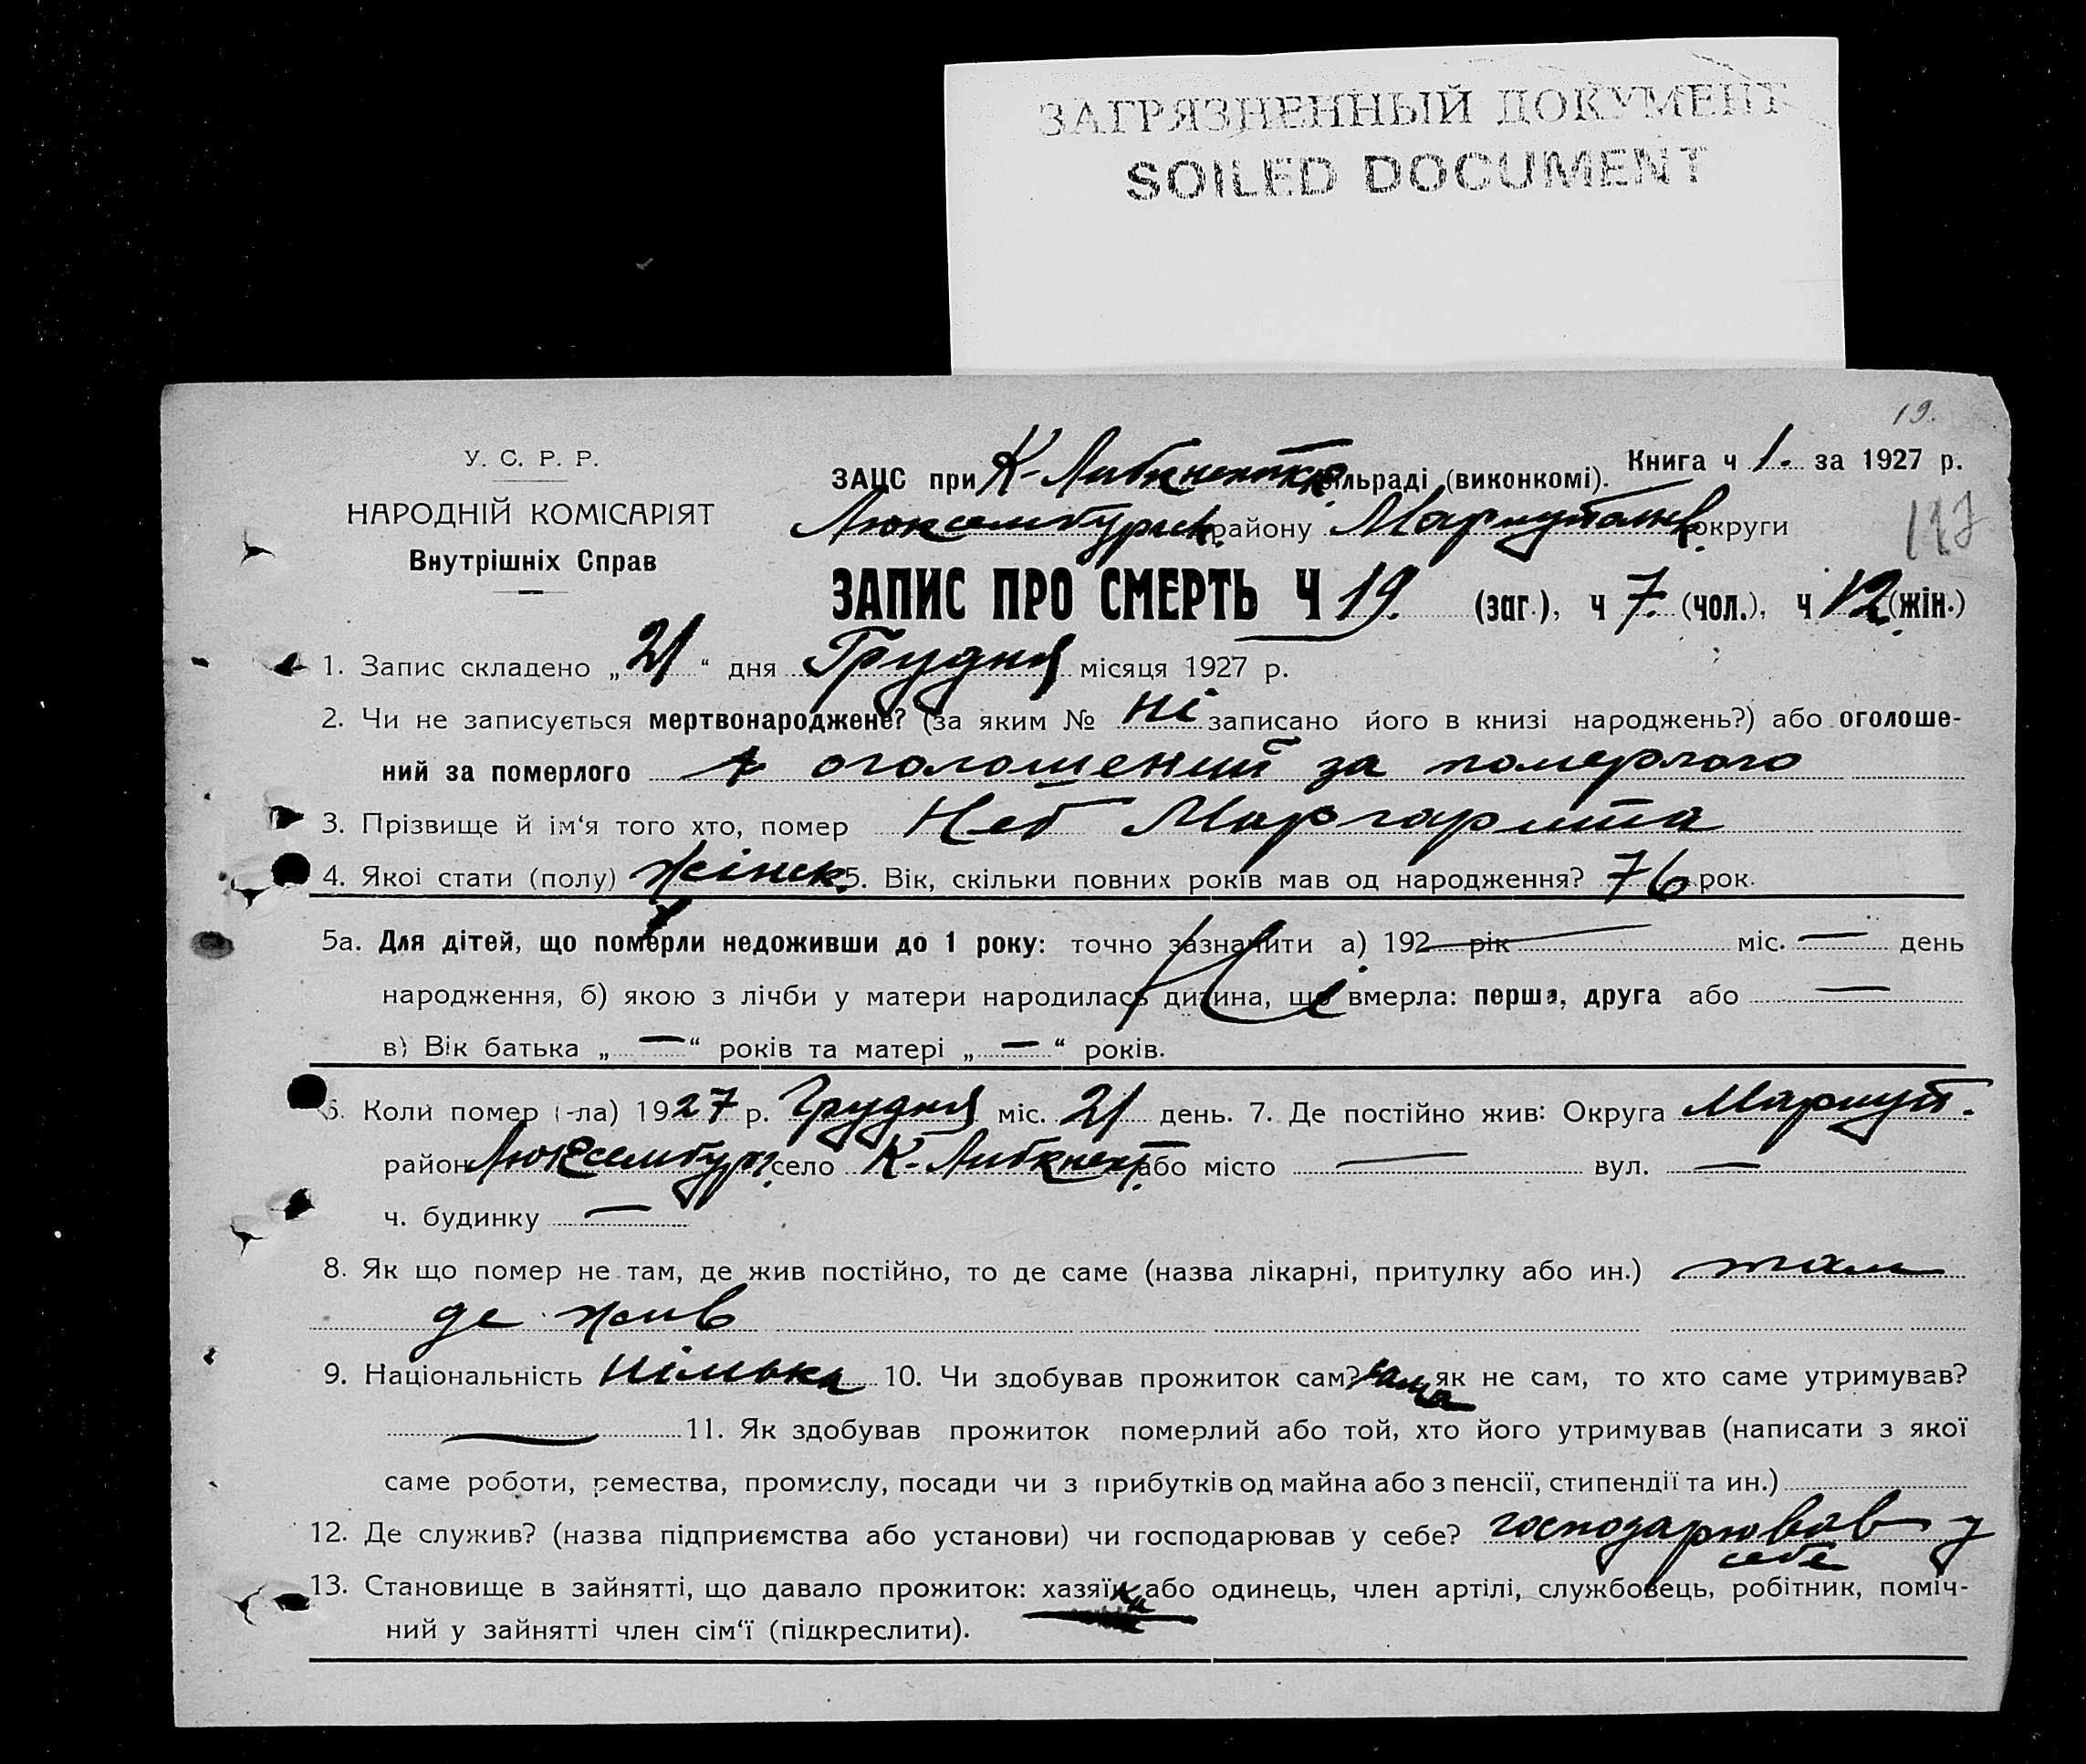 ЗАГРЯЗНЕННЫЙ ДОКУМЕНТ
SOILED DOCUMENT
19.
У. С. Р. Р.
НАРОДНІЙ КОМІСАРІЯТ
Внутрішніх Справ
Книга ч 1. за 1927 р.
ЗАЦС при К-Либкнехтск. сільраді (виконкомі).
Люксембургск. району Мариупольск. округи
ЗАПИС ПРО СМЕРТЬ Ч 19. (заг.), ч 7. (чол.), ч 12 (жін.)
1. Запис складено „21“ дня Грудня місяця 1927 р.
2. Чи не записується мертвонароджене? (за яким № Ні записано його в книзі народжень?) або оголоше-
ний за померлого оголошений за померлого
3. Прізвище й ім‘я того хто, помер Неб Маргарита
4. Якоі стати (полу) жінск. 5. Вік, скільки повних років мав од народження? 76 рок.
5а. Для дітей, що померли недоживши до 1 року: точно зазначити а) 192— рік — міс. — день
народження, б) якою з лічби у матери народилась дитина, що вмерла: перша, друга або —
Ні
в) Вік батька „—“ років та матері „—“ років.
6. Коли помер (-ла) 1927 р. Грудня міс. 21 день. 7. Де постійно жив: Округа Мариуп.
район Люксембург. село К-Либкнехт. або місто — вул. —
ч. будинку —
8. Як що помер не там, де жив постійно, то де саме (назва лікарні, притулку або ин.) там
де жив
9. Національність німька 10. Чи здобував прожиток сам? сама як не сам, то хто саме утримував?
— 11. Як здобував прожиток померлий або той, хто його утримував (написати з якої
саме роботи, ремества, промислу, посади чи з прибутків од майна або з пенсії, стипендії та ин.)
12. Де служив? (назва підприємства або установи) чи господарював у себе? господарював у
себе
13. Становище в зайнятті, що давало прожиток: хазяїн або одинець, член артілі, службовець, робітник, поміч-
ний у зайнятті член сім‘ї (підкреслити).